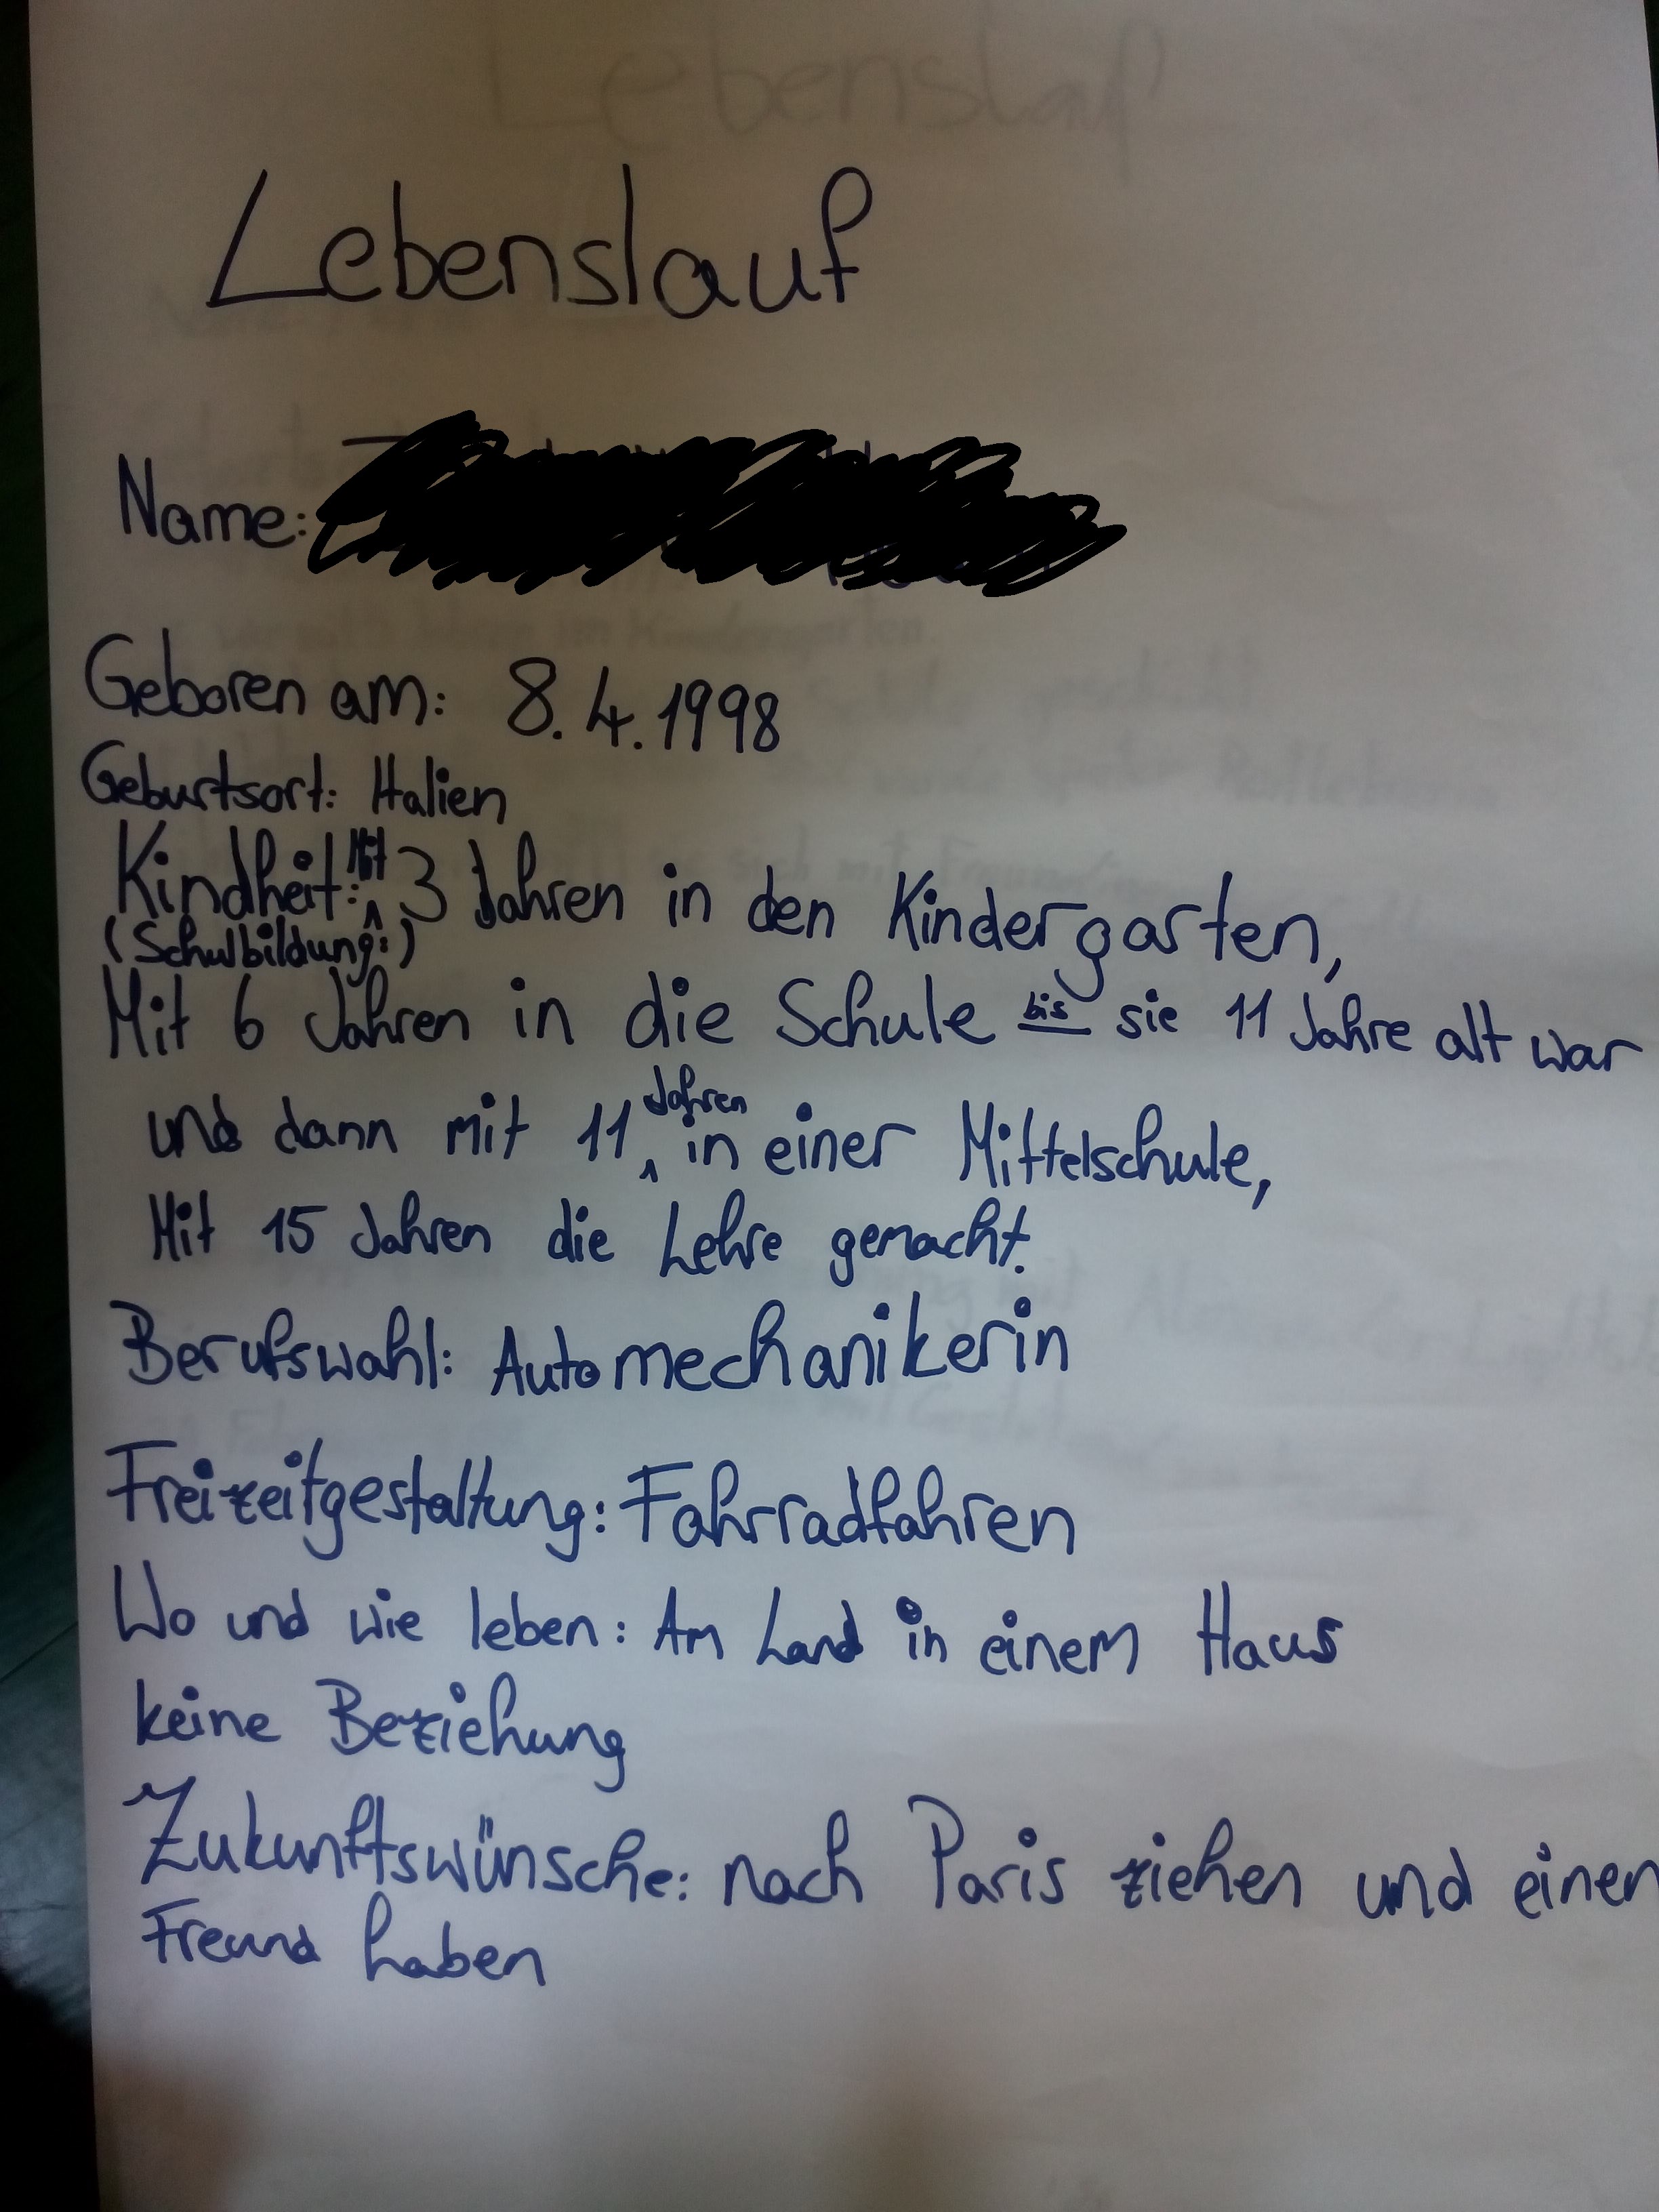 Lebenslauf
Name:
Geboren am: 8.4.1998
Geburtsort: Italien
Kindheit: Mit 3 Jahren in den Kindergarten,
(Schulbildung:)
Mit 6 Jahren in die Schule bis sie 11 Jahre alt war
und dann mit 11 Jahren in einer Mittelschule,
Mit 15 Jahren die Lehre gemacht.
Berufswahl: Automechanikerin
Freizeitgestaltung: Fahrradfahren
Wo und wie leben: Am Land in einem Haus
keine Beziehung
Zukunftswünsche: nach Paris ziehen und einen
Freund haben